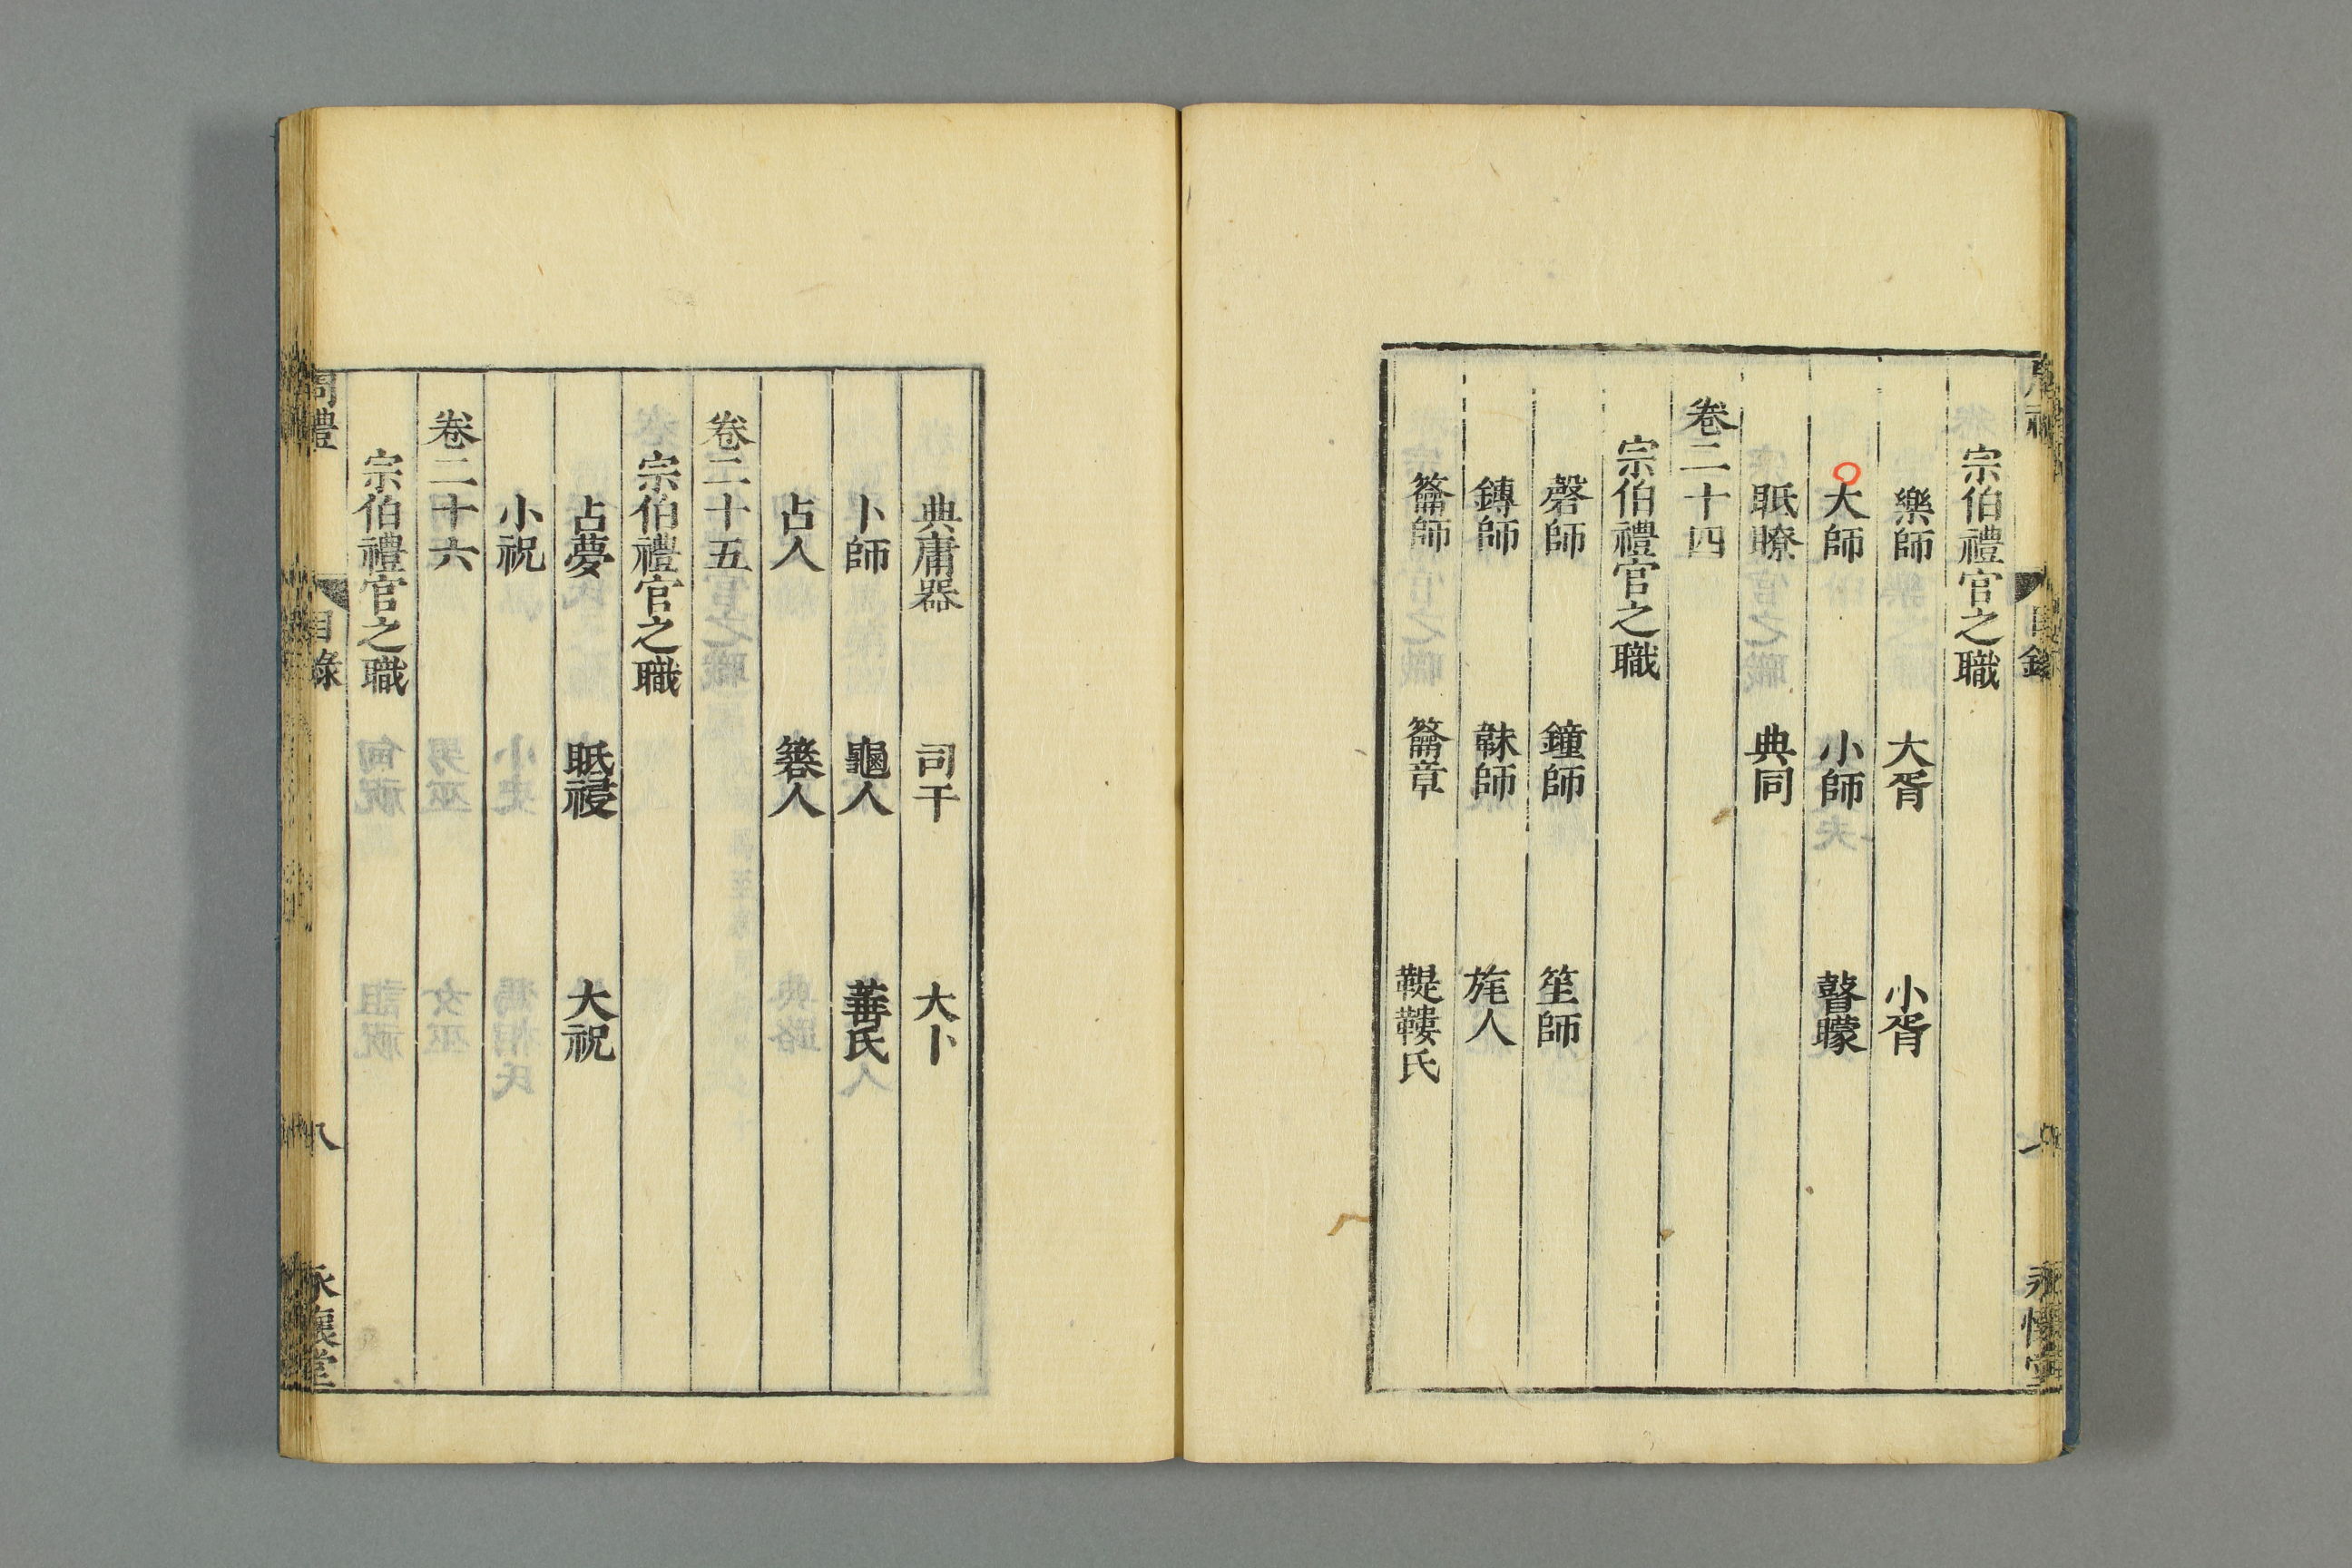 宗伯禮官之職
樂師 大胥 小胥
大師 小師 瞽矇
眡瞭 典同
卷二十四
宗伯禮官之職
磬師 鐘師 笙師
鏄師 韎師 旄人
籥師 籥章 鞮鞻氏
典庸器 司干 大卜
卜師 龜人 菙氏
占人 簭人
卷二十五
宗伯禮官之職
占夢 眡祲 大祝
小祝
卷二十六
宗伯禮官之職
周禮 目錄 八 永懷堂